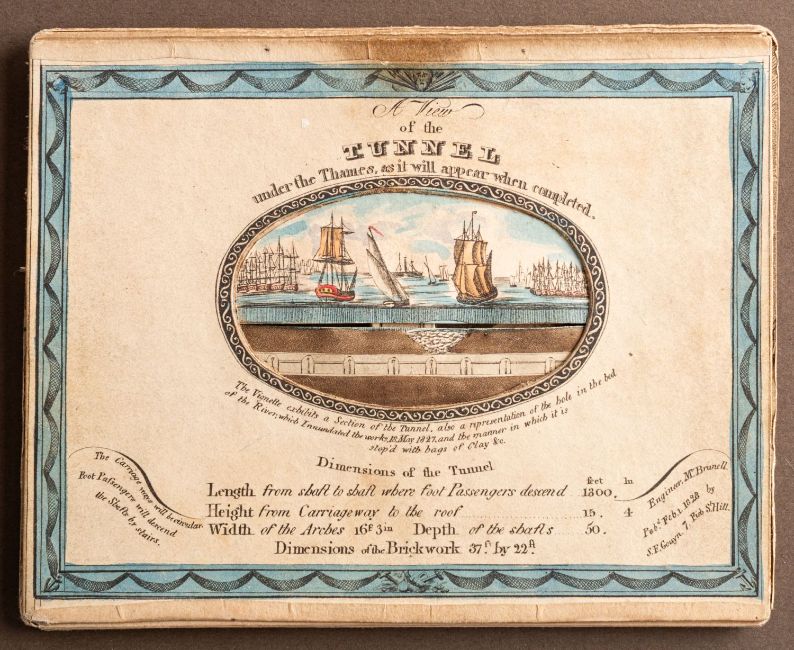 A View
of the
TUNNEL
under the Thames, as it will appear when completed.
The Vignette exhibits a Section of the Tunnel, also a representation of the hole in the bed
of the River, which Innundated the works, 18, May 1827, and the manner in which it is
stop'd with bags of Clay &c.
Dimensions of the Tunnel
feet In
Length from shaft to shaft where foot Passengers descend 1300.
Height from Carriageway to the roof 15. 4
Width of the Arches 16f 3in Depth of the shafts 50.
Dimensions of the Brickwork 37ft by 22ft
The Carriage ways will be circular
Foot Passengers will descend
the Shafts by stairs.
Engineer, Mr Brunell
Pubd Feb 1 1828 by
S.F. Gouyn, 7, Fish St Hill.